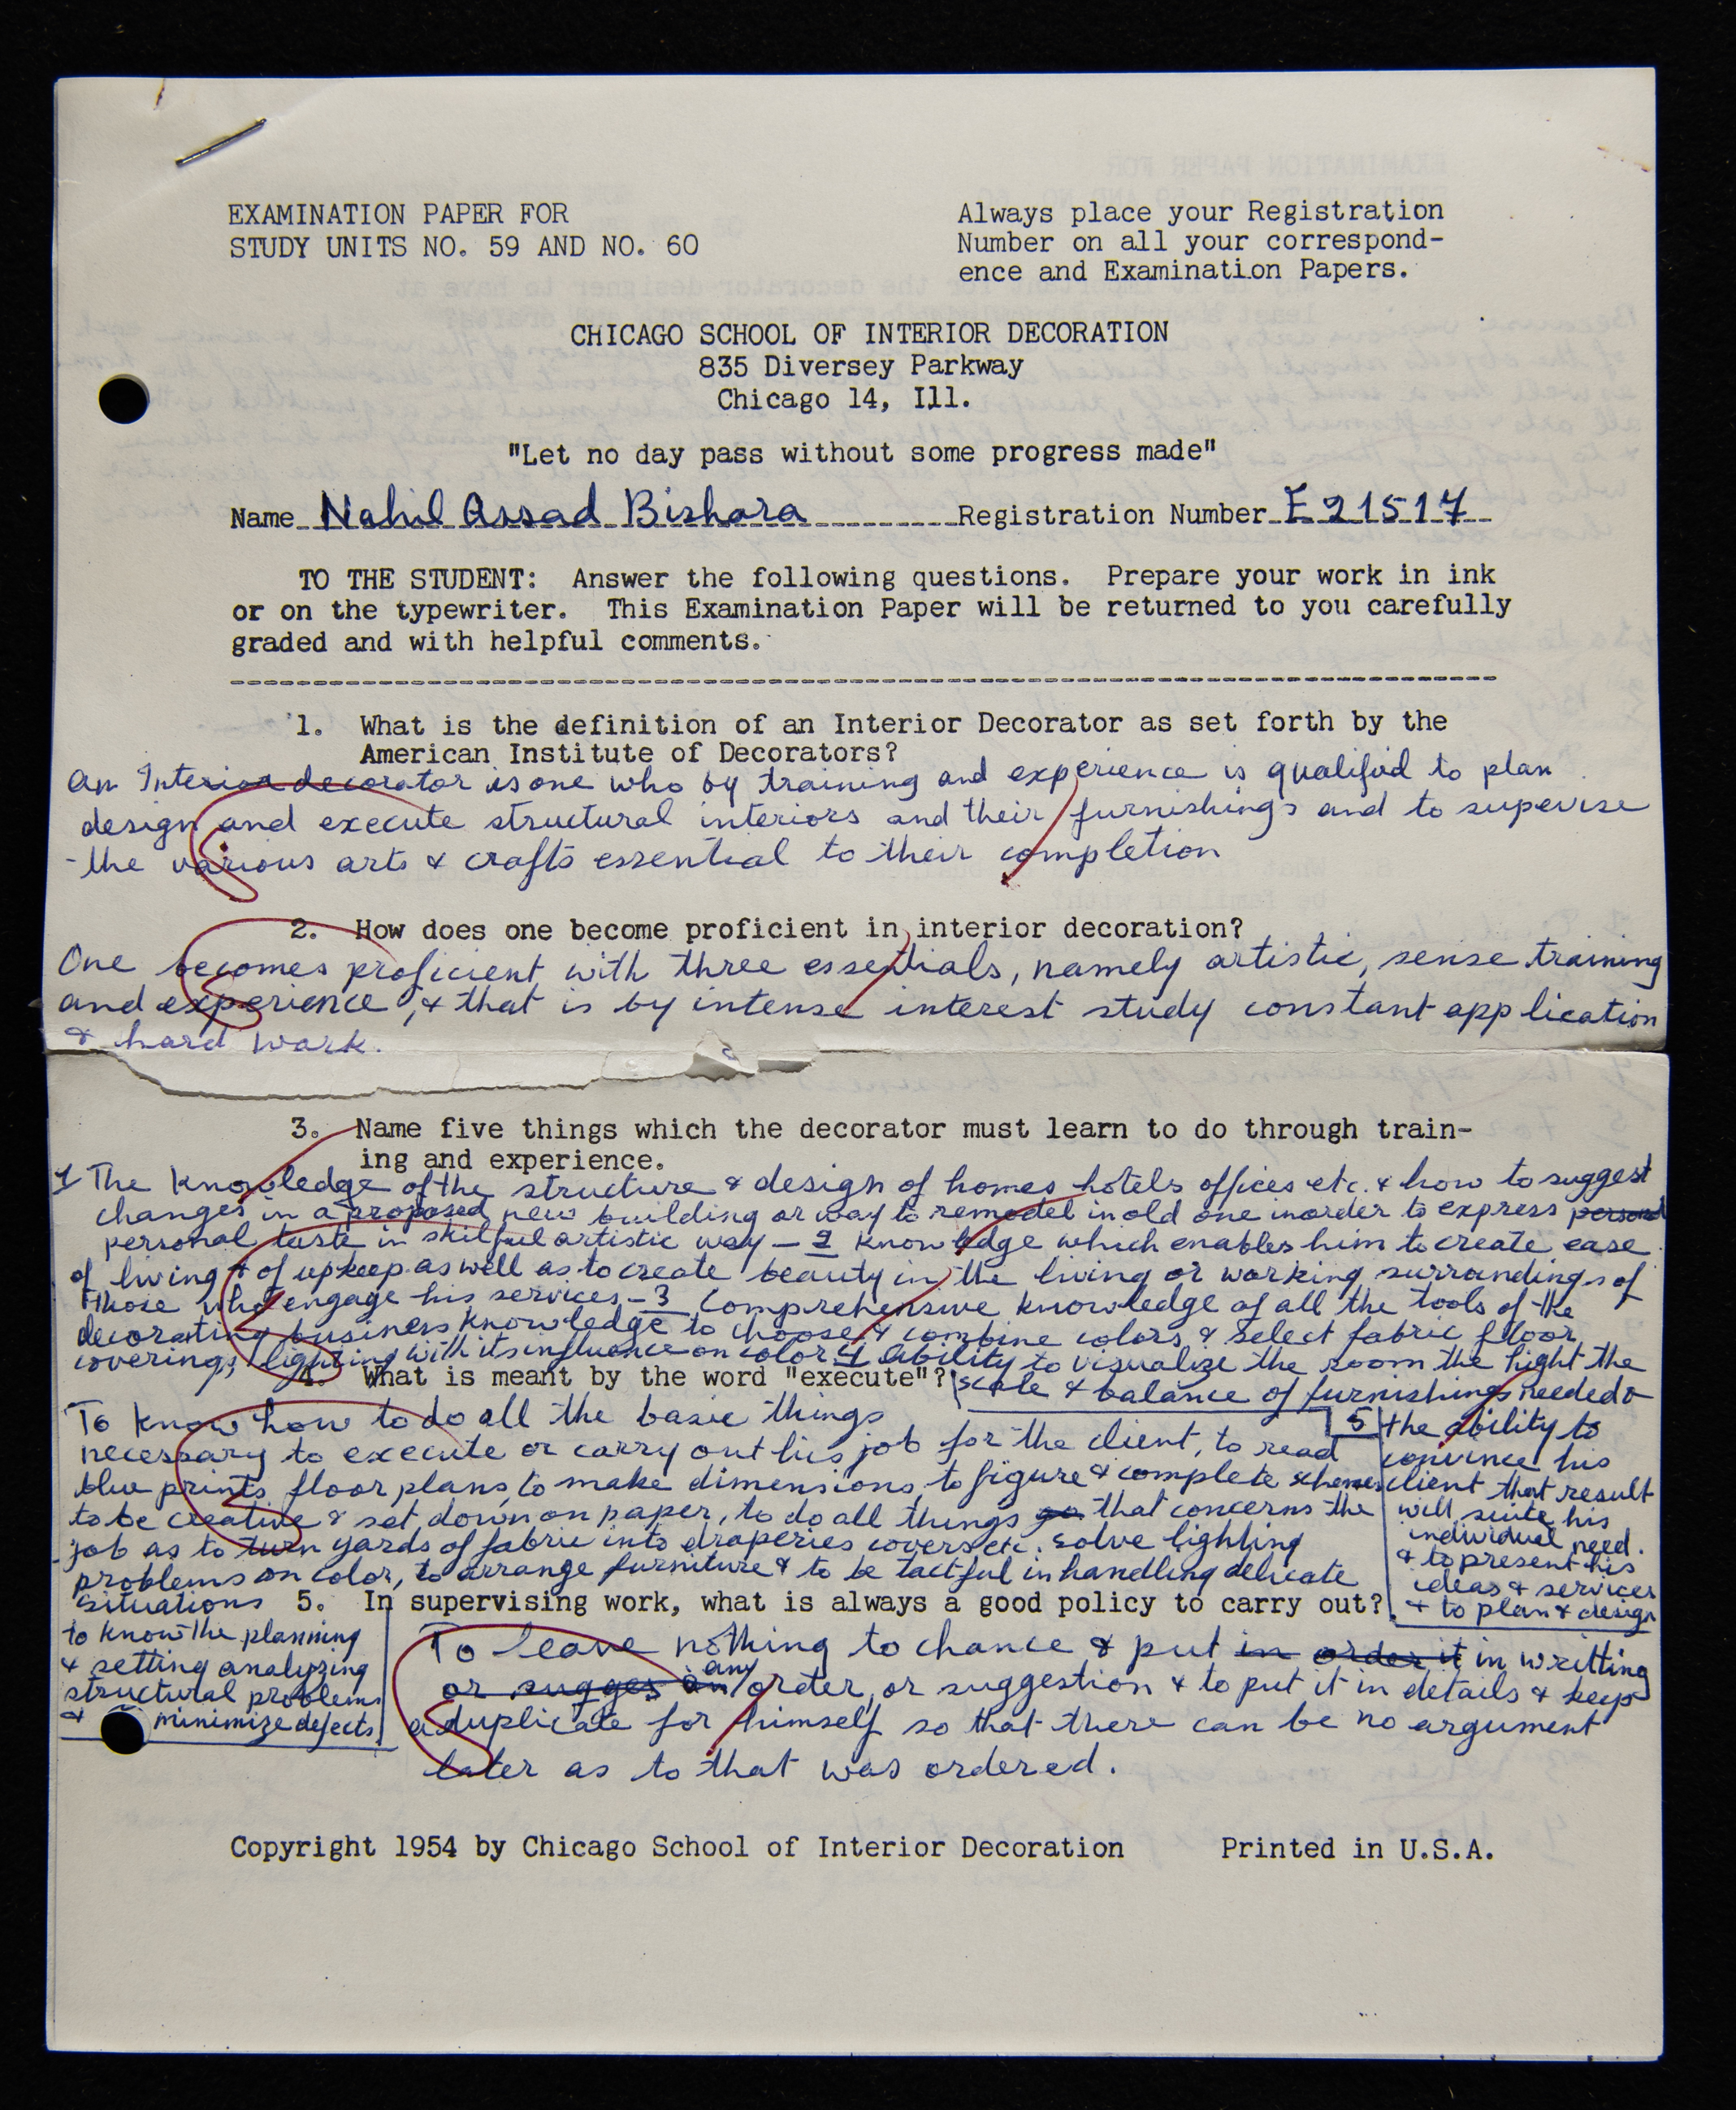 EXAMINATION PAPER FOR
STUDY UNITS NO. 59 AND NO. 60
Always place your Registration
Number on all your correspond-
ence and Examination Papers.
CHICAGO SCHOOL OF INTERIOR DECORATION
835 Diversey Parkway
Chicago 14, Ill.
"Let no day pass without some progress made"
Name Nahil Assad Bishara Registration Number E21517
TO THE STUDENT: Answer the following questions. Prepare your work in ink
or on the typewriter. This Examination Paper will be returned to you carefully
graded and with helpful comments.
1. What is the definition of an Interior Decorator as set forth by the
American Institute of Decorators?
An Interior decorator is one who by training and experience is qualified to plan
design and execute structural interiors and their furnishings and to supevise
the various arts & crafts essential to their completion
2. How does one become proficient in interior decoration?
One becomes proficient with three essentials, namely artistic, sense training
and experience, & that is by intense interest study constant application
& hard work.
3. Name five things which the decorator must learn to do through train-
ing and experience.
1 The knowledge of the structure & design of homes hotels offices etc. & how to suggest
changes in a proposed new building or way to remodel in old one inorder to express person
personal taste in skilful artistic way – 2 knowledge which enables him to create ease
of living & of upkeep as well as to create beauty in the living or working surrandings of
those who engage his services – 3 Comprehensive knowledge of all the tools of the
decorating business knowledge to choose & combine colors & select fabric floor
coverings, lighting with its influence on color 4 ability to visualize the room the hight the
scale & balance of furnishings needed &
5 the ability to
convince his
client that result
will suite his
individual need.
& to present his
ideas & services
& to plan & design
4. What is meant by the word "execute"?
To know how to do all the basic things
necessary to execute or carry out his job for the client, to read
blue prints floor plans, to make dimensions, to figure & complete schemes
to be creative & set down on paper, to do all things go that concerns the
job as to turn yards of fabric into draperies covers etc. solve lighting
problems on color, to arrange furniture & to be tactful in handling delicate
situations
to know the planning
& setting analyzing
structural problems
& minimize defects
5. In supervising work, what is always a good policy to carry out?
To leave nothing to chance & put in order it in writting
or sugges an any order, or suggestion & to put it in details & keep
a duplicate for himself so that there can be no argument
later as to that was ordered.
Copyright 1954 by Chicago School of Interior Decoration Printed in U.S.A.